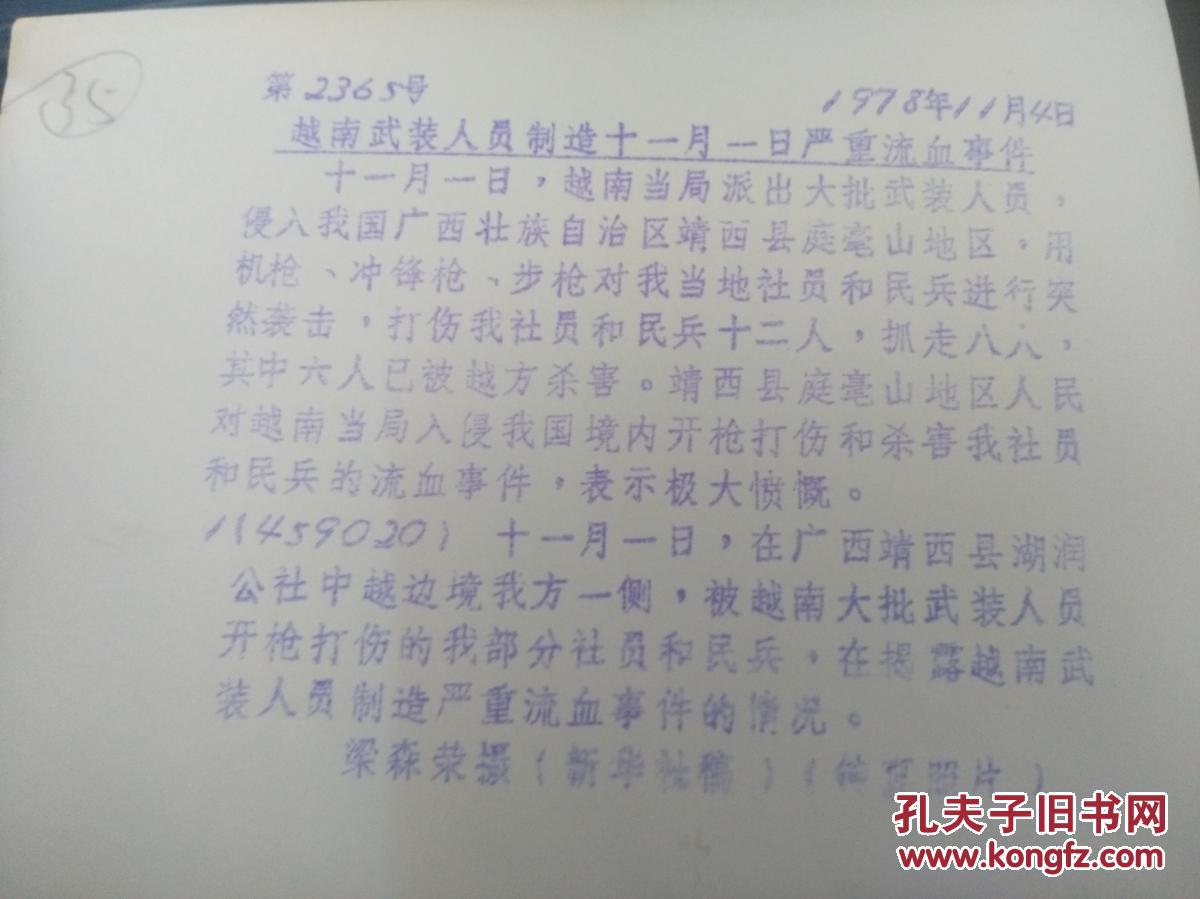 35
第2365号
1978年11月4日
越南武装人员制造十一月一日严重流血事件
十一月一日，越南当局派出大批武装人员，
侵入我国广西壮族自治区靖西县庭毫山地区，用
机枪、冲锋枪、步枪对我当地社员和民兵进行突
然袭击，打伤我社员和民兵十二人，抓走八人，
其中六人已被越方杀害。靖西县庭毫山地区人民
对越南当局入侵我国境内开枪打伤和杀害我社员
和民兵的流血事件，表示极大愤慨。
1(459020) 十一月一日，在广西靖西县湖润
公社中越边境我方一侧，被越南大批武装人员
开枪打伤的我部分社员和民兵，在揭露越南武
装人员制造严重流血事件的情况。
梁森荣摄（新华社稿）（传真照片）
孔夫子旧书网
www.kongfz.com